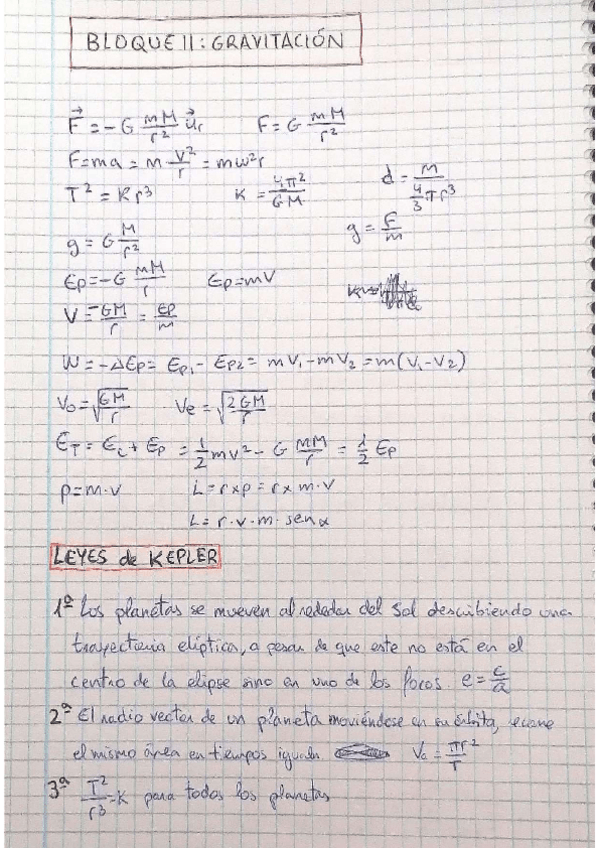 BLOQUE II: GRAVITACIÓN
F⃗ = -G mM/r² u⃗r F = G mM/r²
F = ma = m v²/r = mω²r
T² = Kr³ K = 4π²/GM d = m/(4/3 πr³)
g = G M/r² g = F/m
Ep = -G mM/r Ep = mV
V = -GM/r = Ep/m
W = -ΔEp = Ep₁ - Ep₂ = mV₁ - mV₂ = m(V₁ - V₂)
Vo = √(GM/r) Ve = √(2GM/r)
ET = Ec + Ep = 1/2 mv² - G mM/r = 1/2 Ep
p = m·v L = r x p = r x m·v
L = r·v·m·sen α
LEYES de KEPLER
1ª Los planetas se mueven alrededor del Sol describiendo una
trayectoria elíptica, a pesar de que este no está en el
centro de la elipse sino en uno de los focos. e = c/a
2ª El radio vector de un planeta moviéndose en su órbita, recorre
el mismo área en tiempos iguales Va = πr²/T
3ª T²/r³ = K para todos los planetas